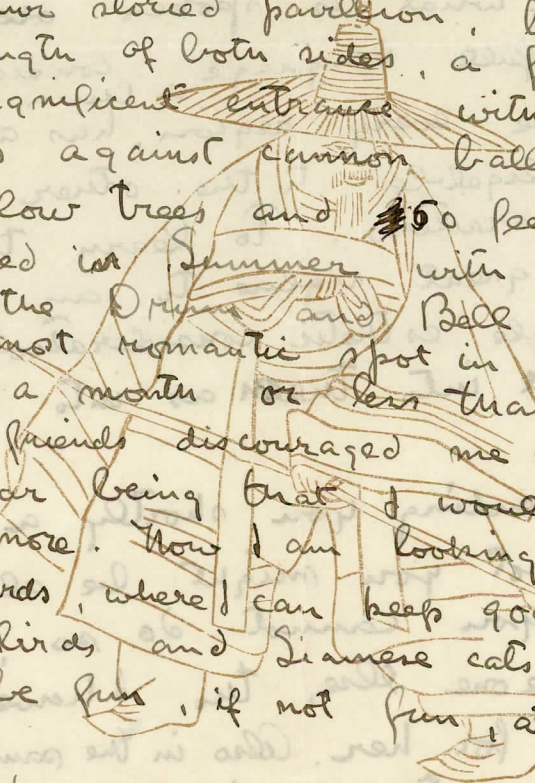 our storied pavilion,
ngth of both sides, a f
agnificent entrance with
s against cannon ball
low trees and 50 fee
ed in Summer with
the Drum and Bell
most romantic spot in
a month or less tha
friends discouraged me
ar being that I woul
more. Now I am looking
rds, where I can keep goo
birds and Siamese cats
ve fun, if not fun, a
for her. Also in the same